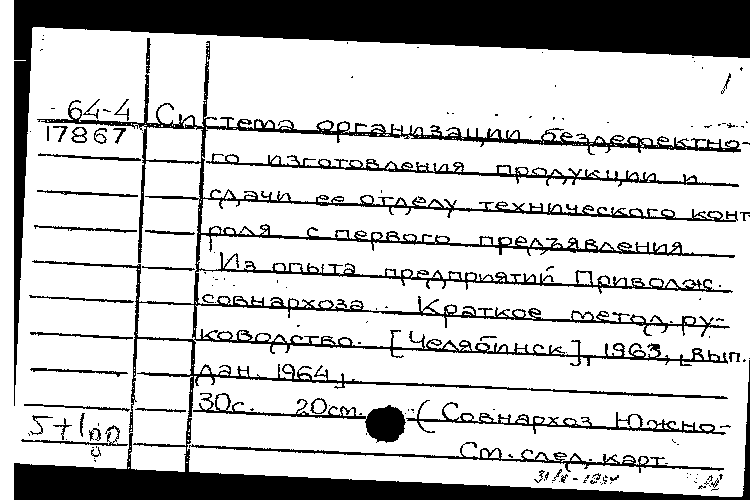 64-4 Система организации бездефектно-
17867 го изготовления продукции и
сдачи ее отделу технического конт
роля с первого предъявления.
Из опыта предприятий Приволж.
совнархоза. Краткое метод. ру-
ководство. [Челябинск], 1963, [вып.
дан. 1964].
30с. 20см. (Совнархоз Южно-
5+1
См. след. карт.